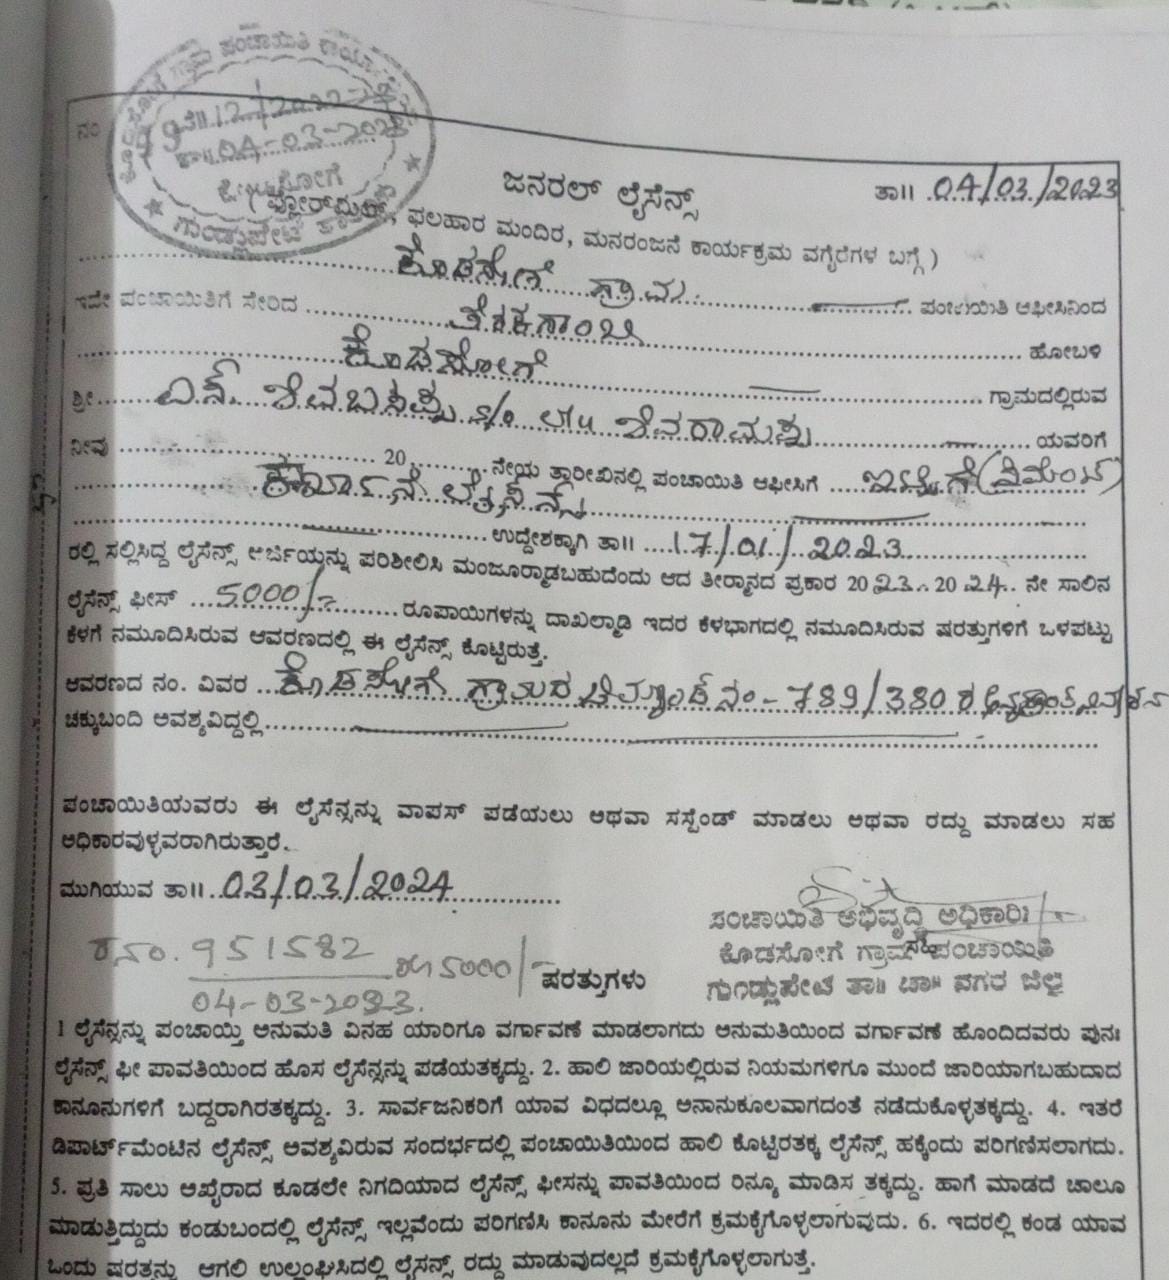 ಗ್ರಾಮ ಪಂಚಾಯಿತಿ
ನಂ
ತಾ॥ 04-03-2023
ಗುಂಡ್ಲುಪೇಟೆ
ಜನರಲ್ ಲೈಸೆನ್ಸ್
ತಾ॥ 04/03/2023
(ಫ್ಲೋರ್‌ಮಿಲ್, ಫಲಹಾರ ಮಂದಿರ, ಮನರಂಜನೆ ಕಾರ್ಯಕ್ರಮ ವಗೈರೆಗಳ ಬಗ್ಗೆ)
ಕೊಡಸೋಗೆ ಗ್ರಾಮ ಪಂಚಾಯಿತಿ ಆಫೀಸಿನಿಂದ
ಇದೇ ಪಂಚಾಯಿತಿಗೆ ಸೇರಿದ ತೆರಕಣಾಂಬಿ ಹೋಬಳಿ
ಕೊಡಸೋಗೆ ಗ್ರಾಮದಲ್ಲಿರುವ
ಶ್ರೀ ಎನ್. ಶಿವಬಸಪ್ಪ s/o ಲೇ॥ ಶಿವರಾಮಪ್ಪ ಯವರಿಗೆ
ನೀವು 20 ನೇಯ ತ್ತಾರೀಖಿನಲ್ಲಿ ಪಂಚಾಯಿತಿ ಆಫೀಸಿಗೆ ಇಟ್ಟಿಗೆ (ಸಿಮೆಂಟ್)
ಕಾರ್ಖಾನೆ ಲೈಸೆನ್ಸ್
ಉದ್ದೇಶಕ್ಕಾಗಿ ತಾ॥ 17/01/2023
ರಲ್ಲಿ ಸಲ್ಲಿಸಿದ್ದ ಲೈಸೆನ್ಸ್ ಅರ್ಜಿಯನ್ನು ಪರಿಶೀಲಿಸಿ ಮಂಜೂರ್ಮಾಡಬಹುದೆಂದು ಆದ ತೀರ್ಮಾನದ ಪ್ರಕಾರ 2023-2024 ನೇ ಸಾಲಿನ
ಲೈಸೆನ್ಸ್ ಫೀಸ್ 5000/- ರೂಪಾಯಿಗಳನ್ನು ದಾಖಲ್ಮಾಡಿ ಇದರ ಕೆಳಭಾಗದಲ್ಲಿ ನಮೂದಿಸಿರುವ ಷರತ್ತುಗಳಿಗೆ ಒಳಪಟ್ಟು
ಕೆಳಗೆ ನಮೂದಿಸಿರುವ ಆವರಣದಲ್ಲಿ ಈ ಲೈಸೆನ್ಸ್ ಕೊಟ್ಟಿರುತ್ತೆ.
ಆವರಣದ ನಂ. ವಿವರ ಕೊಡಸೋಗೆ ಗ್ರಾಮದ ಡಿಮ್ಯಾಂಡ್ ನಂ-789/380 ರ
ಚಕ್ಕುಬಂದಿ ಅವಶ್ಯವಿದ್ದಲ್ಲಿ
ಪಂಚಾಯಿತಿಯವರು ಈ ಲೈಸೆನ್ಸನ್ನು ವಾಪಸ್ ಪಡೆಯಲು ಅಥವಾ ಸಸ್ಪೆಂಡ್ ಮಾಡಲು ಅಥವಾ ರದ್ದು ಮಾಡಲು ಸಹ
ಅಧಿಕಾರವುಳ್ಳವರಾಗಿರುತ್ತಾರೆ.
ಮುಗಿಯುವ ತಾ॥ 03/03/2024
ಪಂಚಾಯಿತಿ ಅಭಿವೃದ್ಧಿ ಅಧಿಕಾರಿ
ಕೊಡಸೋಗೆ ಗ್ರಾಮ ಪಂಚಾಯಿತಿ
ಗುಂಡ್ಲುಪೇಟೆ ತಾ॥ ಚಾ॥ ನಗರ ಜಿಲ್ಲೆ
ರ.ನಂ. 951582 ರೂ 5000/-
04-03-2023.
ಷರತ್ತುಗಳು
1 ಲೈಸೆನ್ಸನ್ನು ಪಂಚಾಯ್ತಿ ಅನುಮತಿ ವಿನಹ ಯಾರಿಗೂ ವರ್ಗಾವಣೆ ಮಾಡಲಾಗದು ಅನುಮತಿಯಿಂದ ವರ್ಗಾವಣೆ ಹೊಂದಿದವರು ಪುನಃ
ಲೈಸೆನ್ಸ್ ಫೀ ಪಾವತಿಯಿಂದ ಹೊಸ ಲೈಸೆನ್ಸನ್ನು ಪಡೆಯತಕ್ಕದ್ದು. 2. ಹಾಲಿ ಜಾರಿಯಲ್ಲಿರುವ ನಿಯಮಗಳಿಗೂ ಮುಂದೆ ಜಾರಿಯಾಗಬಹುದಾದ
ಕಾನೂನುಗಳಿಗೆ ಬದ್ದರಾಗಿರತಕ್ಕದ್ದು. 3. ಸಾರ್ವಜನಿಕರಿಗೆ ಯಾವ ವಿಧದಲ್ಲೂ ಅನಾನುಕೂಲವಾಗದಂತೆ ನಡೆದುಕೊಳ್ಳತಕ್ಕದ್ದು. 4. ಇತರೆ
ಡಿಪಾರ್ಟ್‌ಮೆಂಟಿನ ಲೈಸೆನ್ಸ್ ಅವಶ್ಯವಿರುವ ಸಂದರ್ಭದಲ್ಲಿ ಪಂಚಾಯಿತಿಯಿಂದ ಹಾಲಿ ಕೊಟ್ಟಿರತಕ್ಕ ಲೈಸೆನ್ಸ್ ಹಕ್ಕೆಂದು ಪರಿಗಣಿಸಲಾಗದು.
5. ಪ್ರತಿ ಸಾಲು ಅಖೈರಾದ ಕೂಡಲೇ ನಿಗದಿಯಾದ ಲೈಸೆನ್ಸ್ ಫೀಸನ್ನು ಪಾವತಿಯಿಂದ ರಿನ್ಯೂ ಮಾಡಿಸ ತಕ್ಕದ್ದು. ಹಾಗೆ ಮಾಡದೆ ಚಾಲೂ
ಮಾಡುತ್ತಿದ್ದುದು ಕಂಡುಬಂದಲ್ಲಿ ಲೈಸೆನ್ಸ್ ಇಲ್ಲವೆಂದು ಪರಿಗಣಿಸಿ ಕಾನೂನು ಮೇರೆಗೆ ಕ್ರಮಕೈಗೊಳ್ಳಲಾಗುವುದು. 6. ಇದರಲ್ಲಿ ಕಂಡ ಯಾವ
ಒಂದು ಷರತ್ತನ್ನು ಆಗಲಿ ಉಲ್ಲಂಘಿಸಿದಲ್ಲಿ ಲೈಸೆನ್ಸ್ ರದ್ದು ಮಾಡುವುದಲ್ಲದೆ ಕ್ರಮಕೈಗೊಳ್ಳಲಾಗುತ್ತೆ.